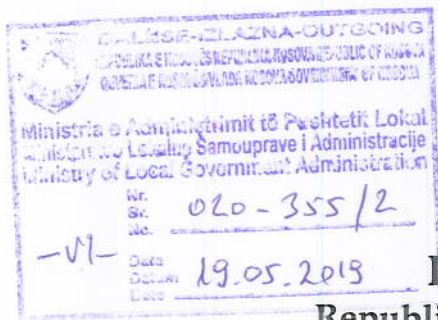 DALËSE-IZLAZNA-OUTGOING
REPUBLIKA E KOSOVËS/REPUBLIKA KOSOVA/REPUBLIC OF KOSOVA
QEVERIA E KOSOVËS/VLADA KOSOVA/GOVERNMENT OF KOSOVA
Ministria e Administrimit të Pushtetit Lokal
Ministarstvo Lokalne Samouprave i Administracije
Ministry of Local Government Administration
Nr.
Br.
No.
020-355/2
-VI-
Data
Datum
Date
19.05.2019
Republi